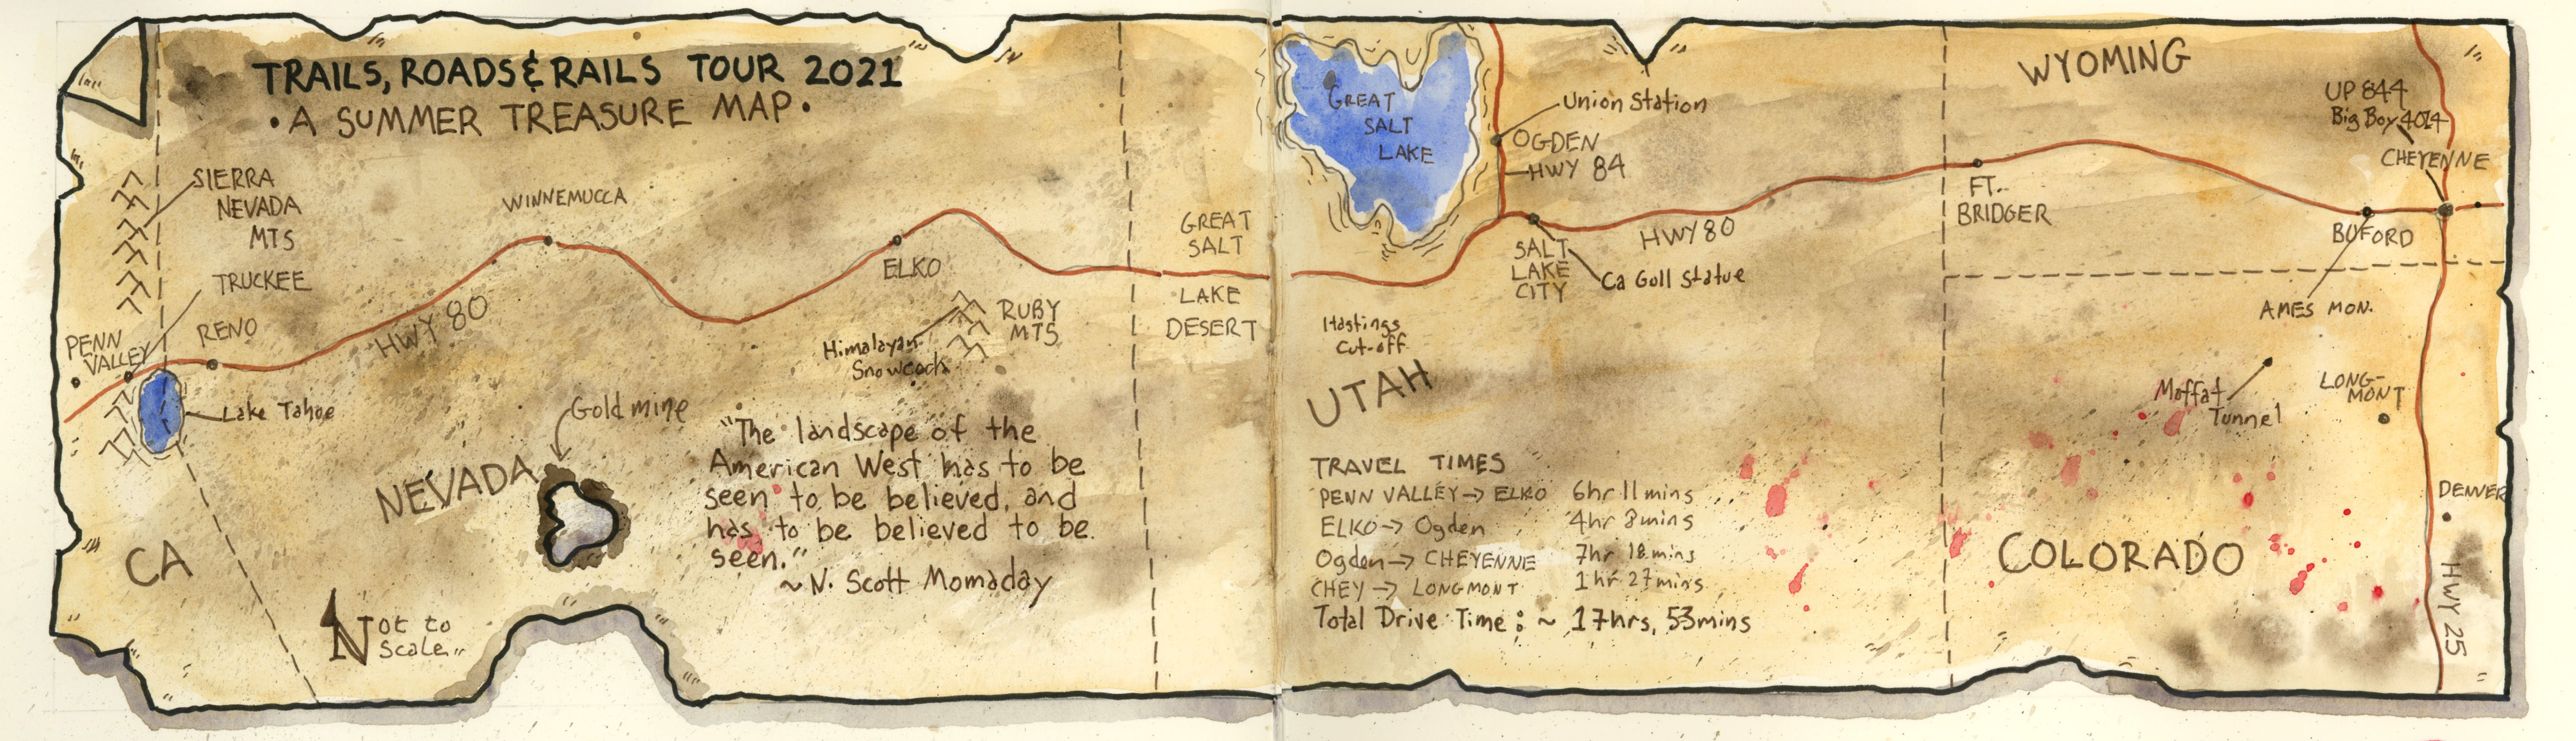 TRAILS, ROADS & RAILS TOUR 2021
• A SUMMER TREASURE MAP •
SIERRA
NEVADA
MTS
TRUCKEE
PENN
VALLEY
RENO
HWY 80
Lake Tahoe
CA
NEVADA
Gold mine
Not to
Scale
WINNEMUCCA
ELKO
Himalayan
Snowcock
RUBY
MTS
"The landscape of the
American West has to be
seen to be believed, and
has to be believed to be
seen."
~ N. Scott Momaday
GREAT
SALT
LAKE
DESERT
GREAT
SALT
LAKE
Union Station
OGDEN
HWY 84
SALT
LAKE
CITY
Ca Gull Statue
HWY 80
Hastings
Cut-off
UTAH
TRAVEL TIMES
PENN VALLEY → ELKO 6hr 11mins
ELKO → Ogden 4hr 8mins
Ogden → CHEYENNE 7hr 18mins
CHEY → LONGMONT 1hr 27mins
Total Drive Time: ~ 17hrs, 53mins
WYOMING
FT.
BRIDGER
UP 844
Big Boy 4014
CHEYENNE
BUFORD
AMES MON.
Moffat
Tunnel
LONG-
MONT
DENVER
COLORADO
HWY 25